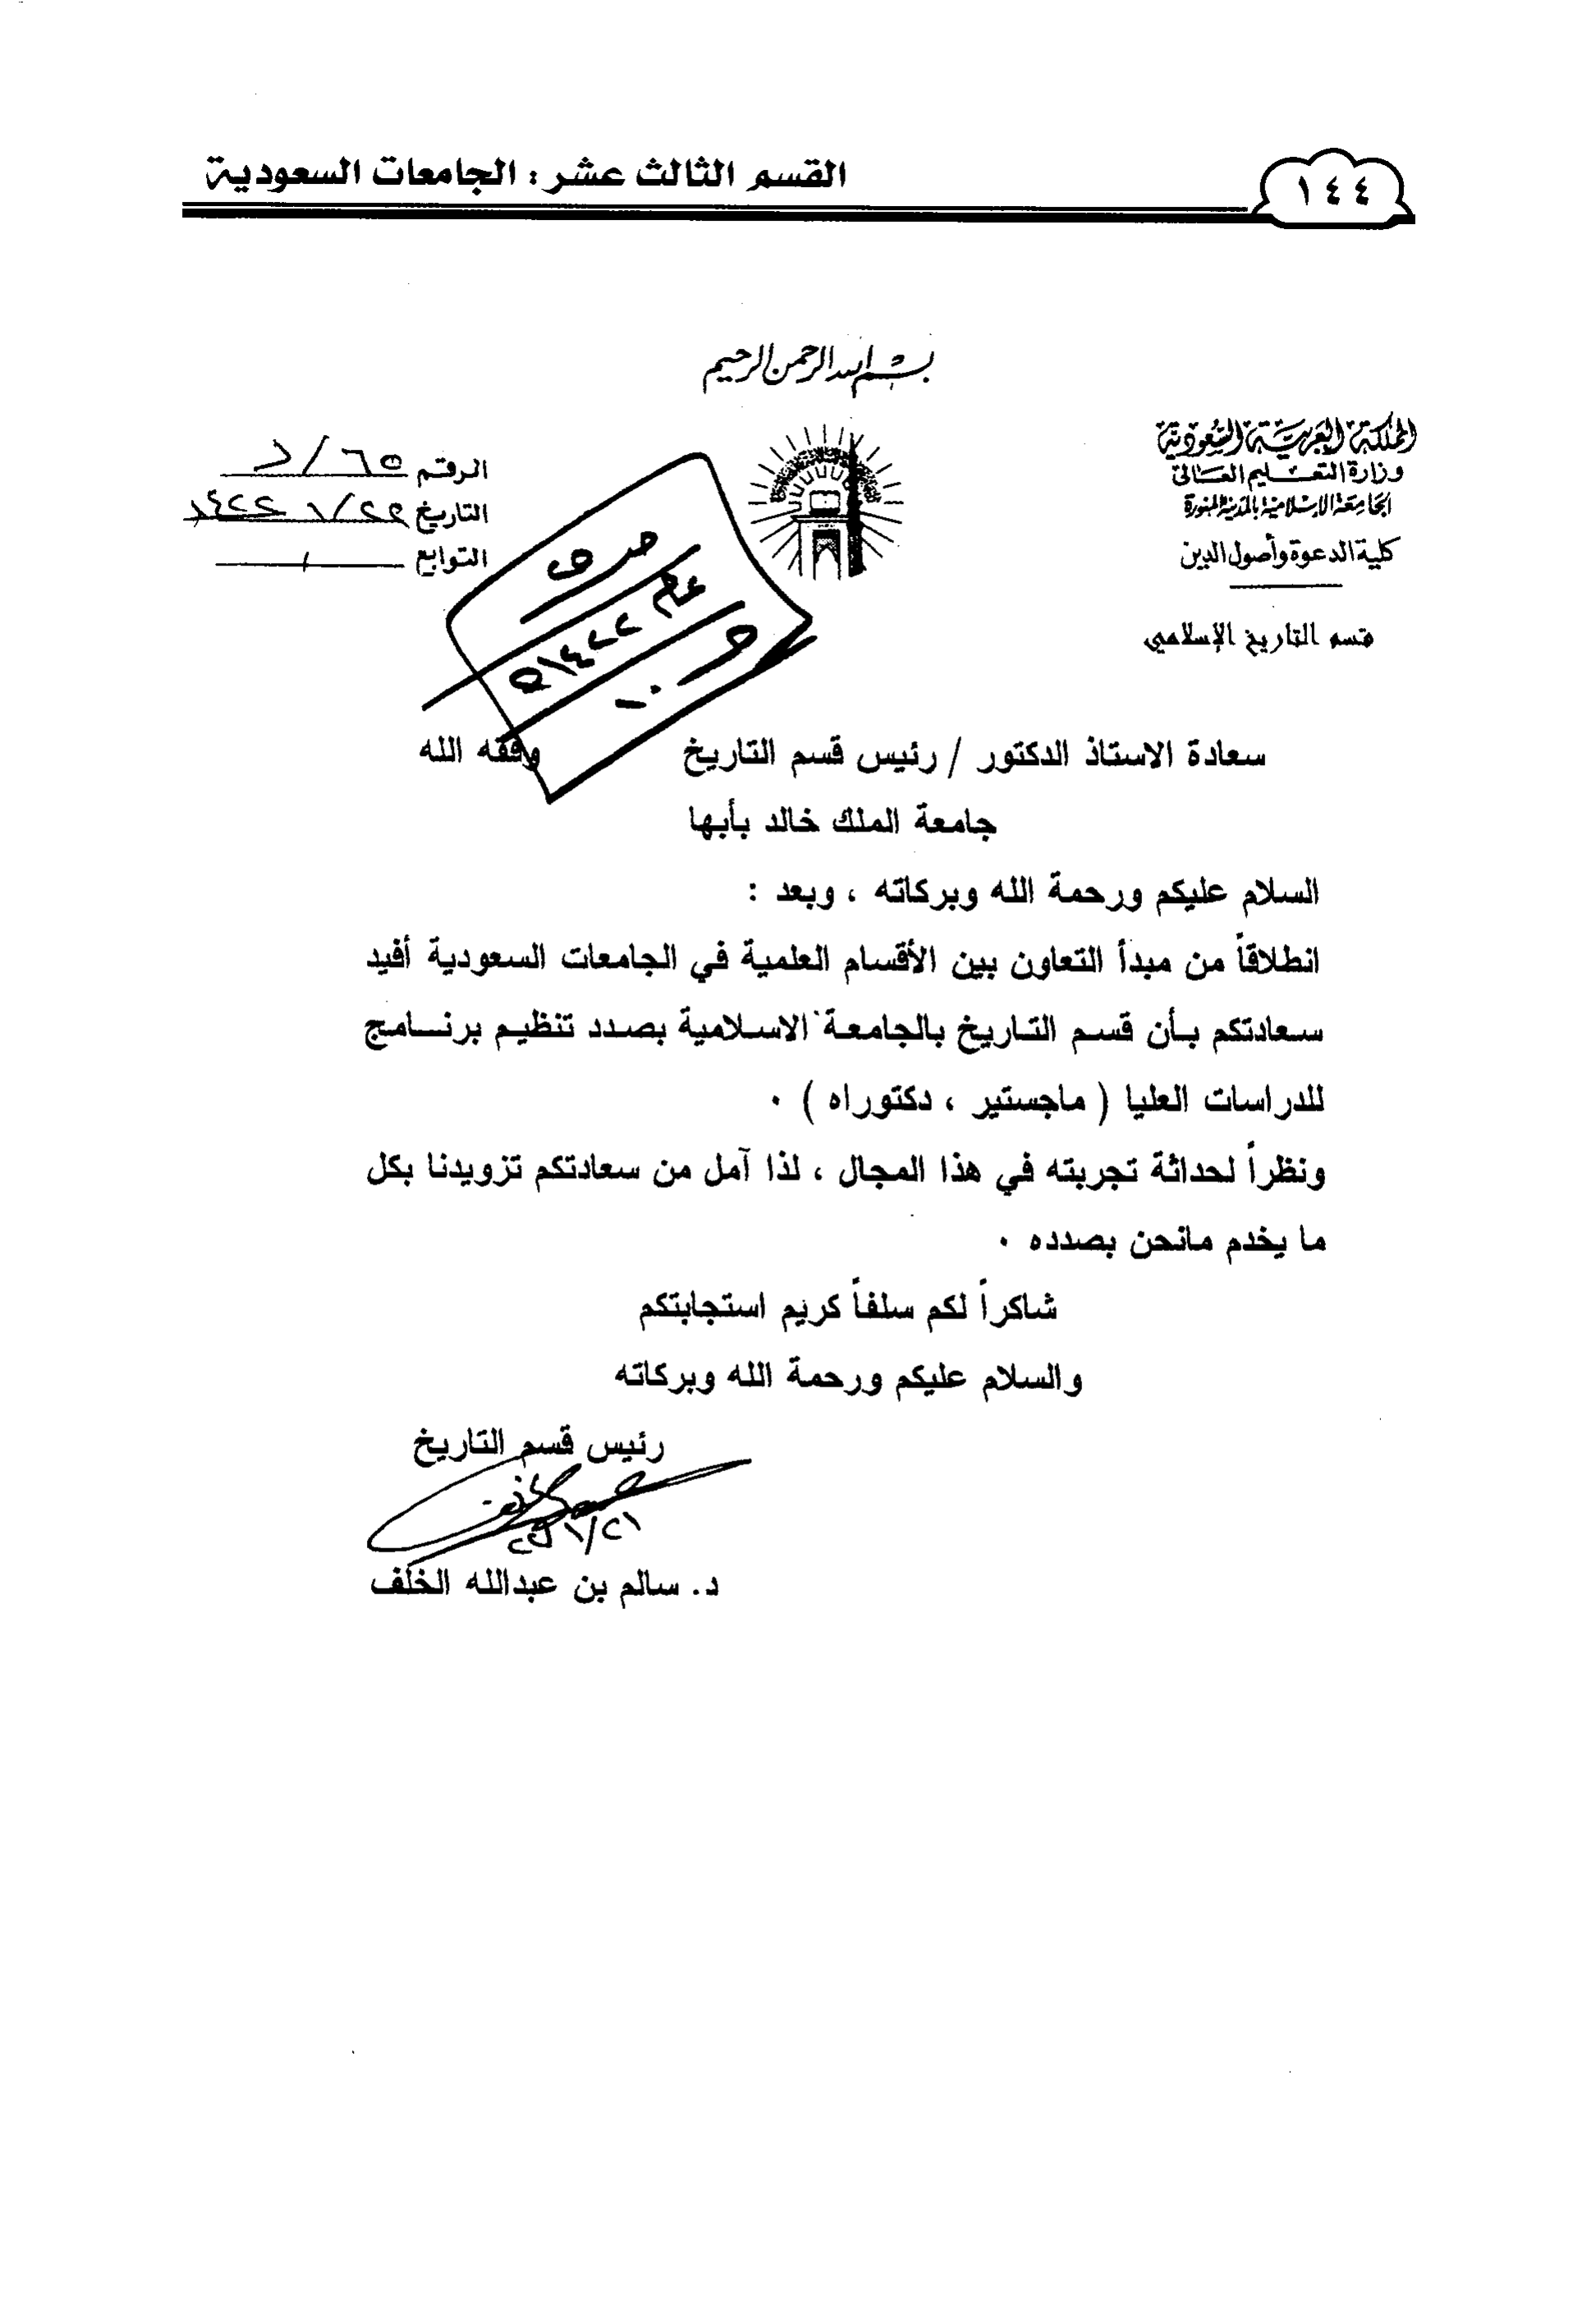 ١٤٤
القسم الثالث عشر : الجامعات السعودية
بسم الله الرحمن الرحيم
المملكة العربية السعودية
وزارة التعليم العالي
الجامعة الإسلامية بالمدينة المنورة
كلية الدعوة وأصول الدين
قسم التاريخ الإسلامي
الرقم
التاريخ ١/٢٥ ١٤٢٢
التوابع
عام
١٤٢٢هـ
سعادة الاستاذ الدكتور / رئيس قسم التاريخ وفقه الله
جامعة الملك خالد بأبها
السلام عليكم ورحمة الله وبركاته ، وبعد :
انطلاقاً من مبدأ التعاون بين الأقسام العلمية في الجامعات السعودية أفيد
سعادتكم بأن قسم التاريخ بالجامعة الاسلامية بصدد تنظيم برنامج
للدراسات العليا ( ماجستير ، دكتوراه ) ٠
ونظراً لحداثة تجربته في هذا المجال ، لذا آمل من سعادتكم تزويدنا بكل
ما يخدم مانحن بصدده ٠
شاكراً لكم سلفاً كريم استجابتكم
والسلام عليكم ورحمة الله وبركاته
رئيس قسم التاريخ
د. سالم بن عبدالله الخلف